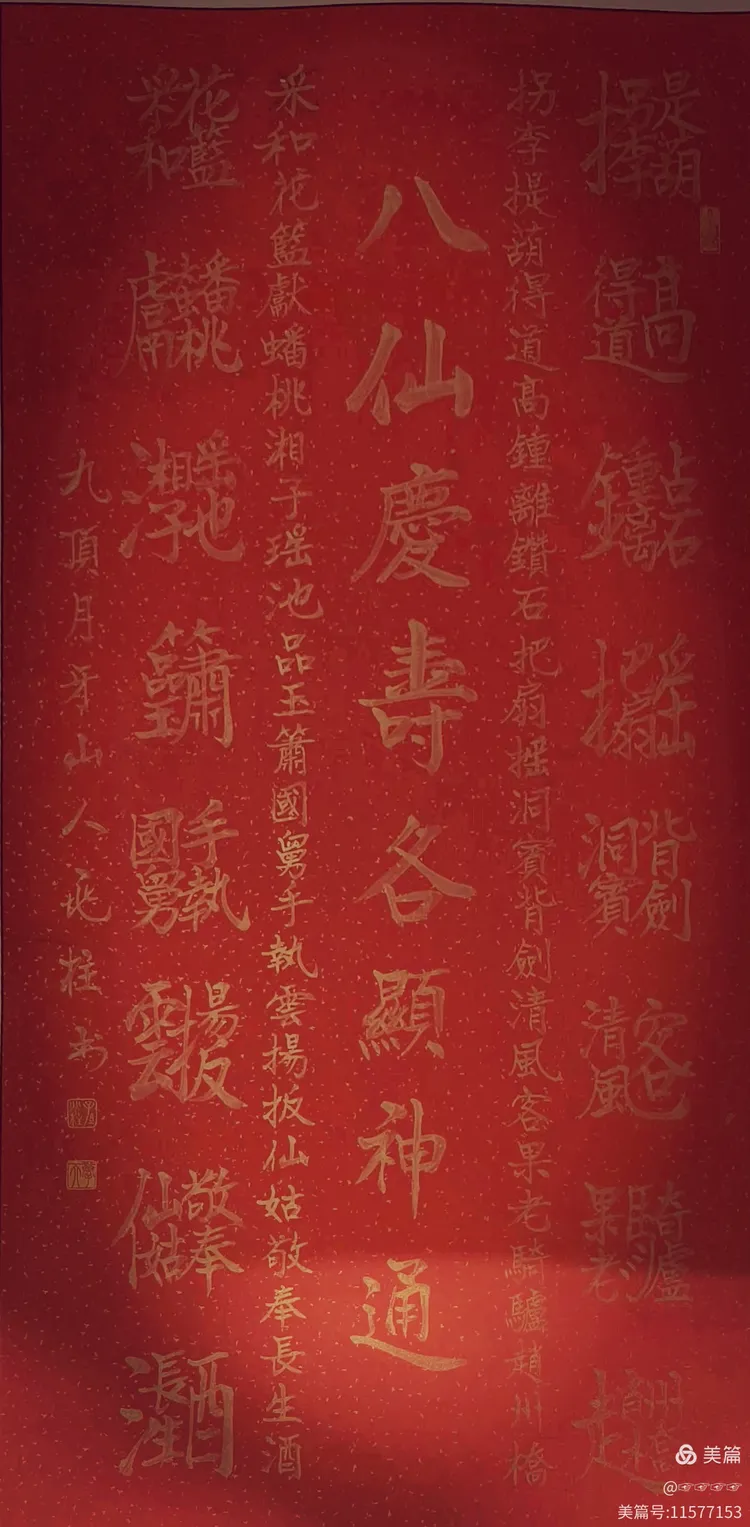 拐李提葫得道髙鍾離鑽石把扇摇洞賓背劍清風客果老騎驢趙州橋
拐李提葫得道髙鍾離鑽石把扇摇洞賓背劍清風客果老騎驢趙州橋
八仙慶壽各顯神通
采和花籃獻蟠桃湘子瑶池品玉簫國舅手執雲揚扳仙姑敬奉長生酒
采和花籃獻蟠桃湘子瑶池品玉簫國舅手執雲揚扳仙姑敬奉長生酒
九頂月牙山人柱书
美篇
@☞☞☞☞
美篇号:11577153